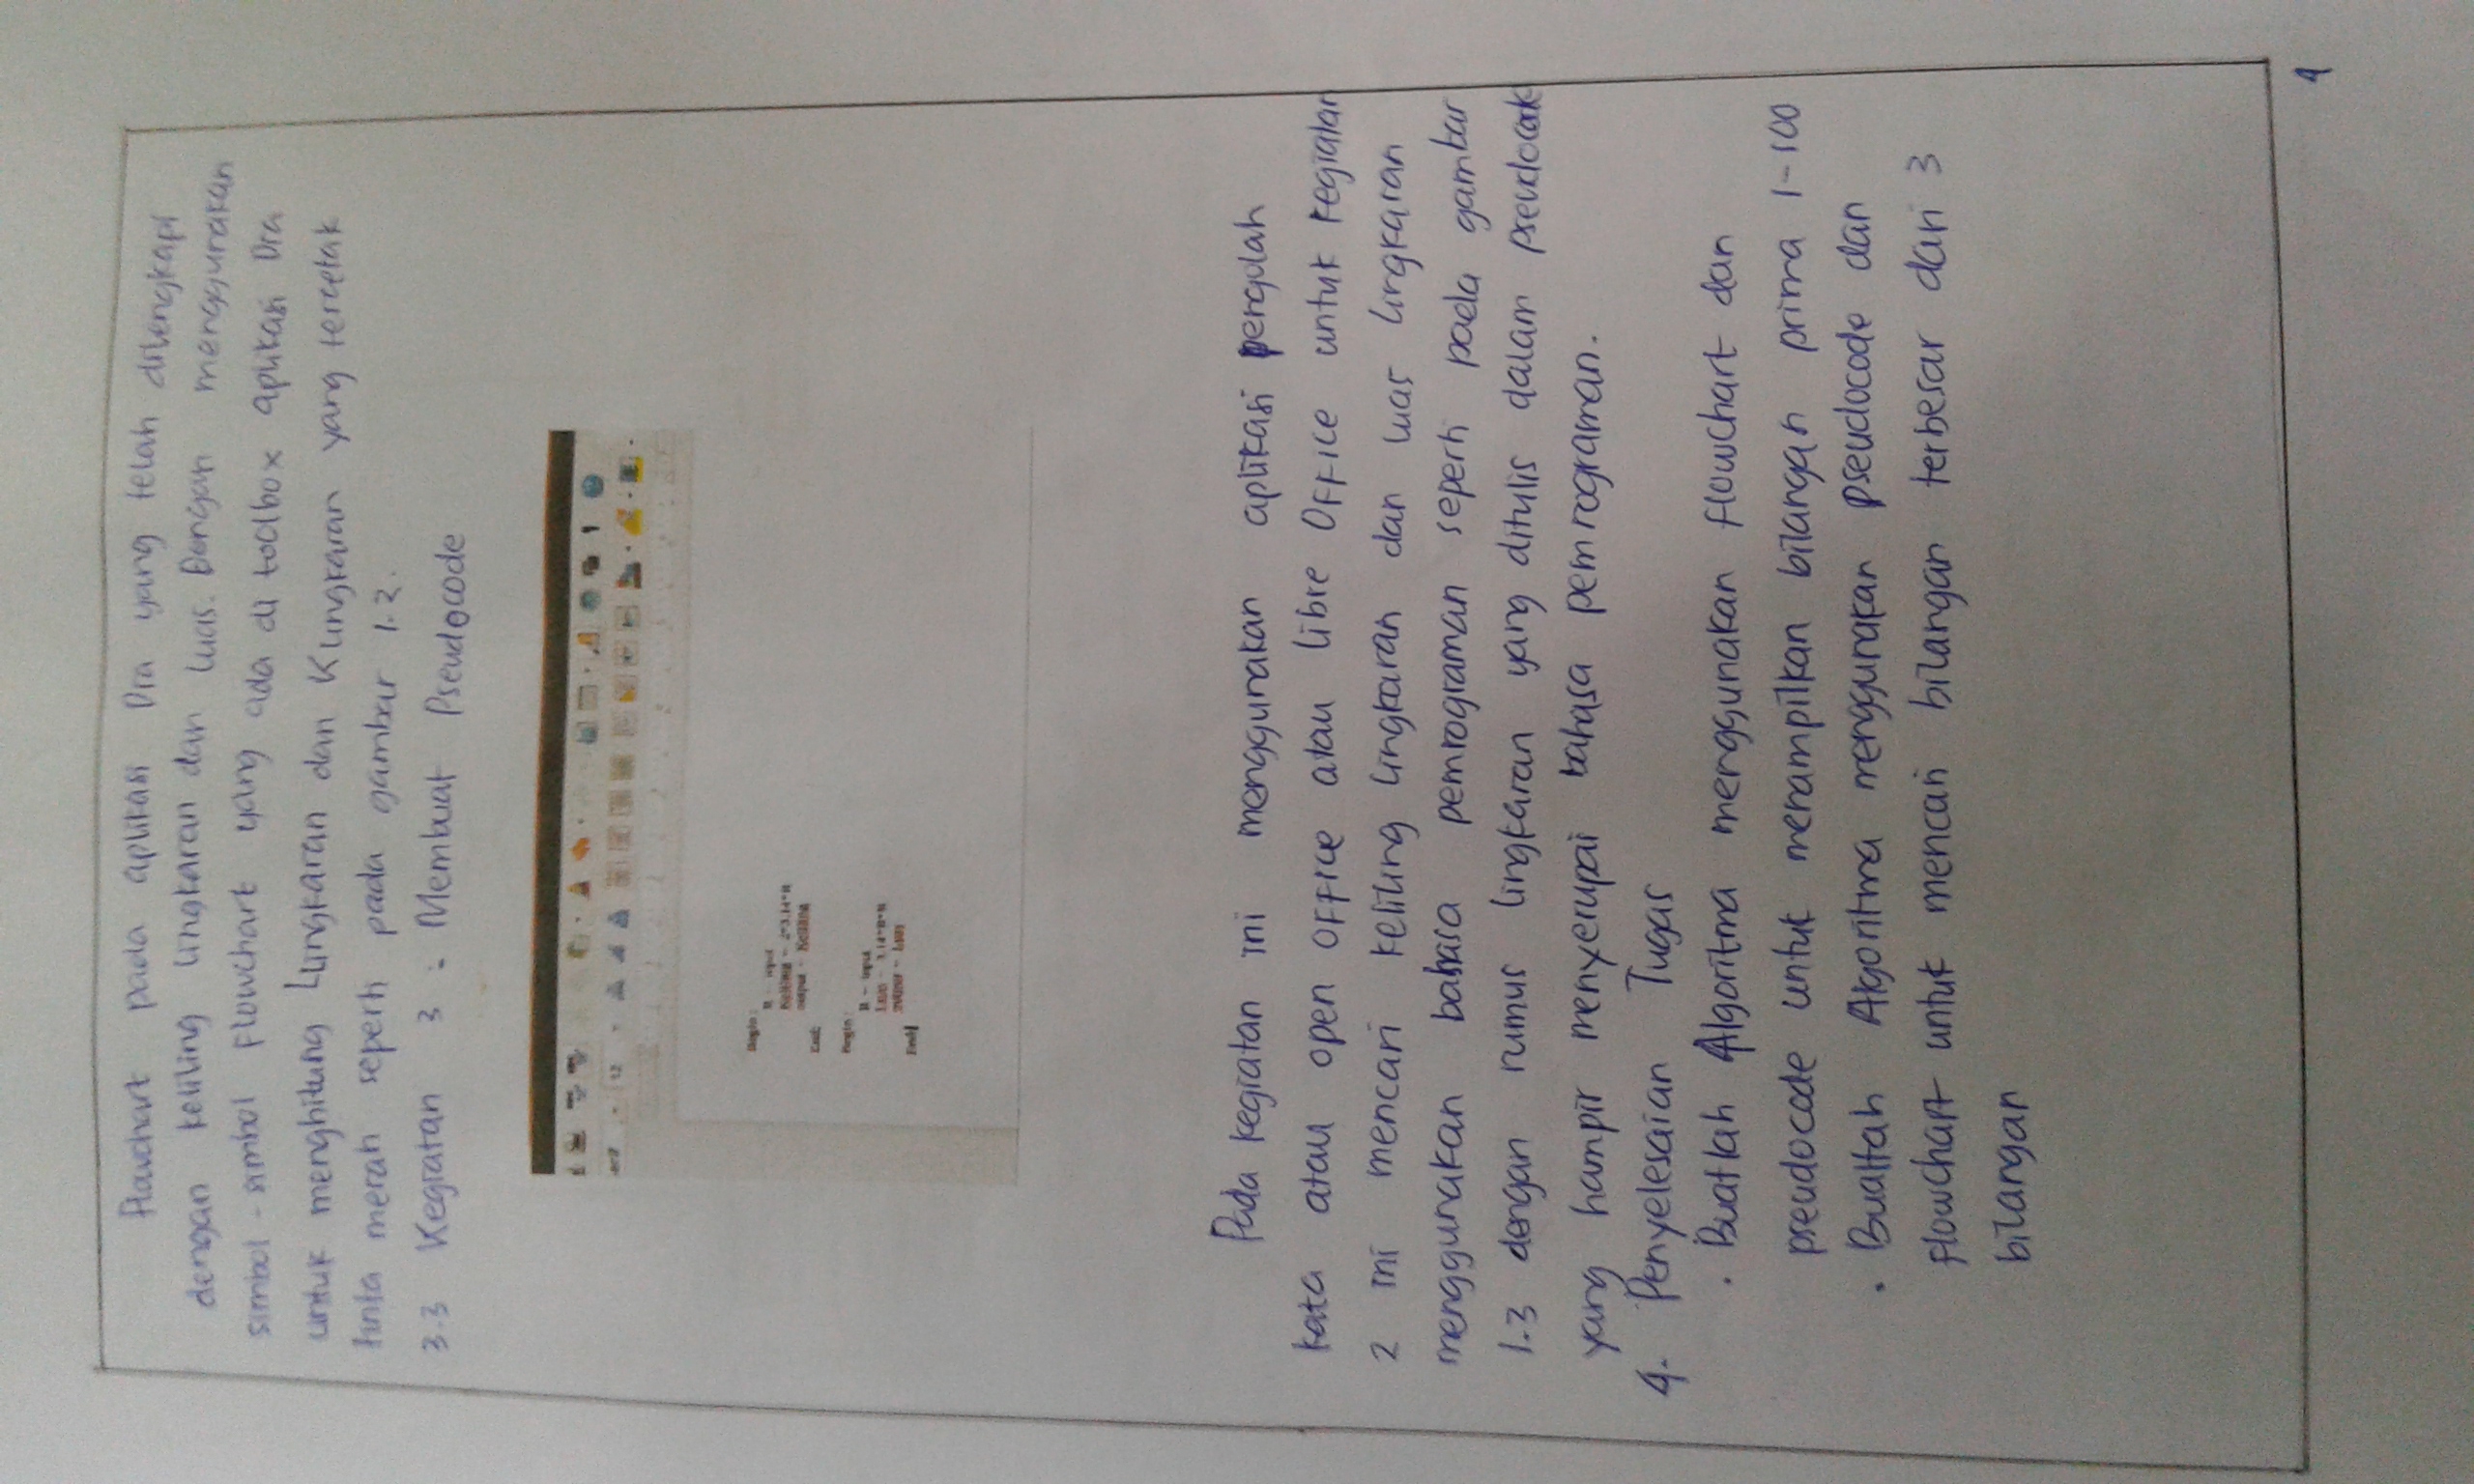 Flowchart pada aplikasi Dia yang telah dilengkapi
dengan keliling lingkaran dan luas. Dengan menggunakan
simbol - simbol flowchart yang ada di toolbox aplikasi Dia
untuk menghitung Llingkaran dan Klingkaran yang tercetak
tinta merah seperti pada gambar 1.2.
3.3 Kegiatan 3 : Membuat Pseudocode
12
Begin :
R = input
Keliling = 2*3.14*R
output = Keliling
End;
Begin :
R = input
Luas = 3.14*R*R
output = Luas
End;
Pada kegiatan ini menggunakan aplikasi pengolah
kata atau open office atau libre Office untuk kegiatan
2 ini mencari keliling lingkaran dan luas lingkaran
menggunakan bahasa pemrograman seperti pada gambar
1.3 dengan rumus lingkaran yang ditulis dalam pseudocode
yang hampir menyerupai bahasa pemrograman.
4. Penyelesaian Tugas
. Buatlah Algoritma menggunakan flowchart dan
pseudocode untuk menampilkan bilangan prima 1-100
. Buatlah Algoritma menggunakan pseudocode dan
flowchart untuk mencari bilangan terbesar dari 3
bilangan
4